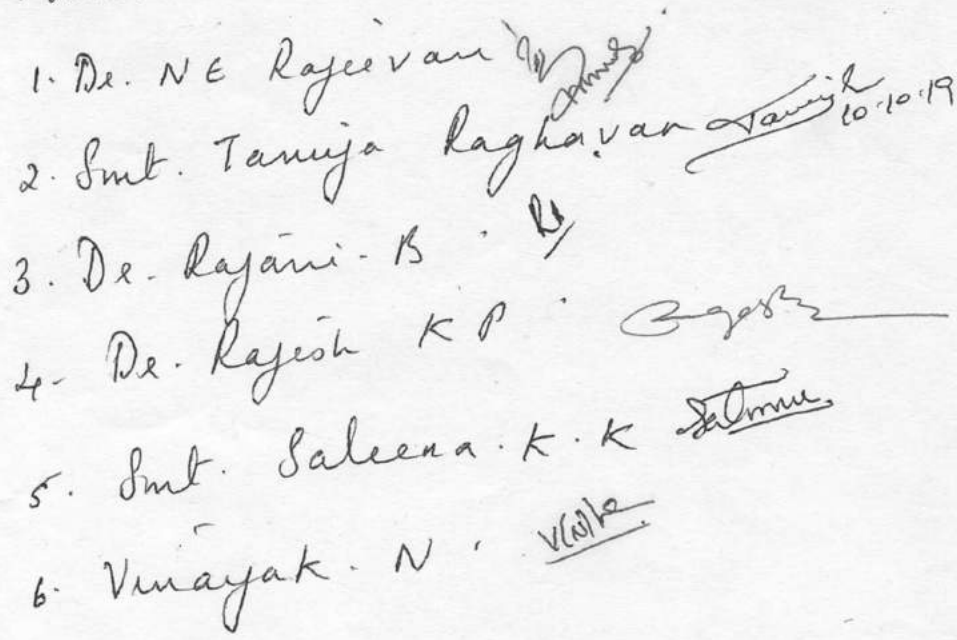 1. Dr. N E Rajeevan
2. Smt. Tanuja Raghavan 10.10.19
3. Dr. Rajani. B
4. Dr. Rajesh K P
5. Smt. Saleena. K. K
6. Vinayak. N